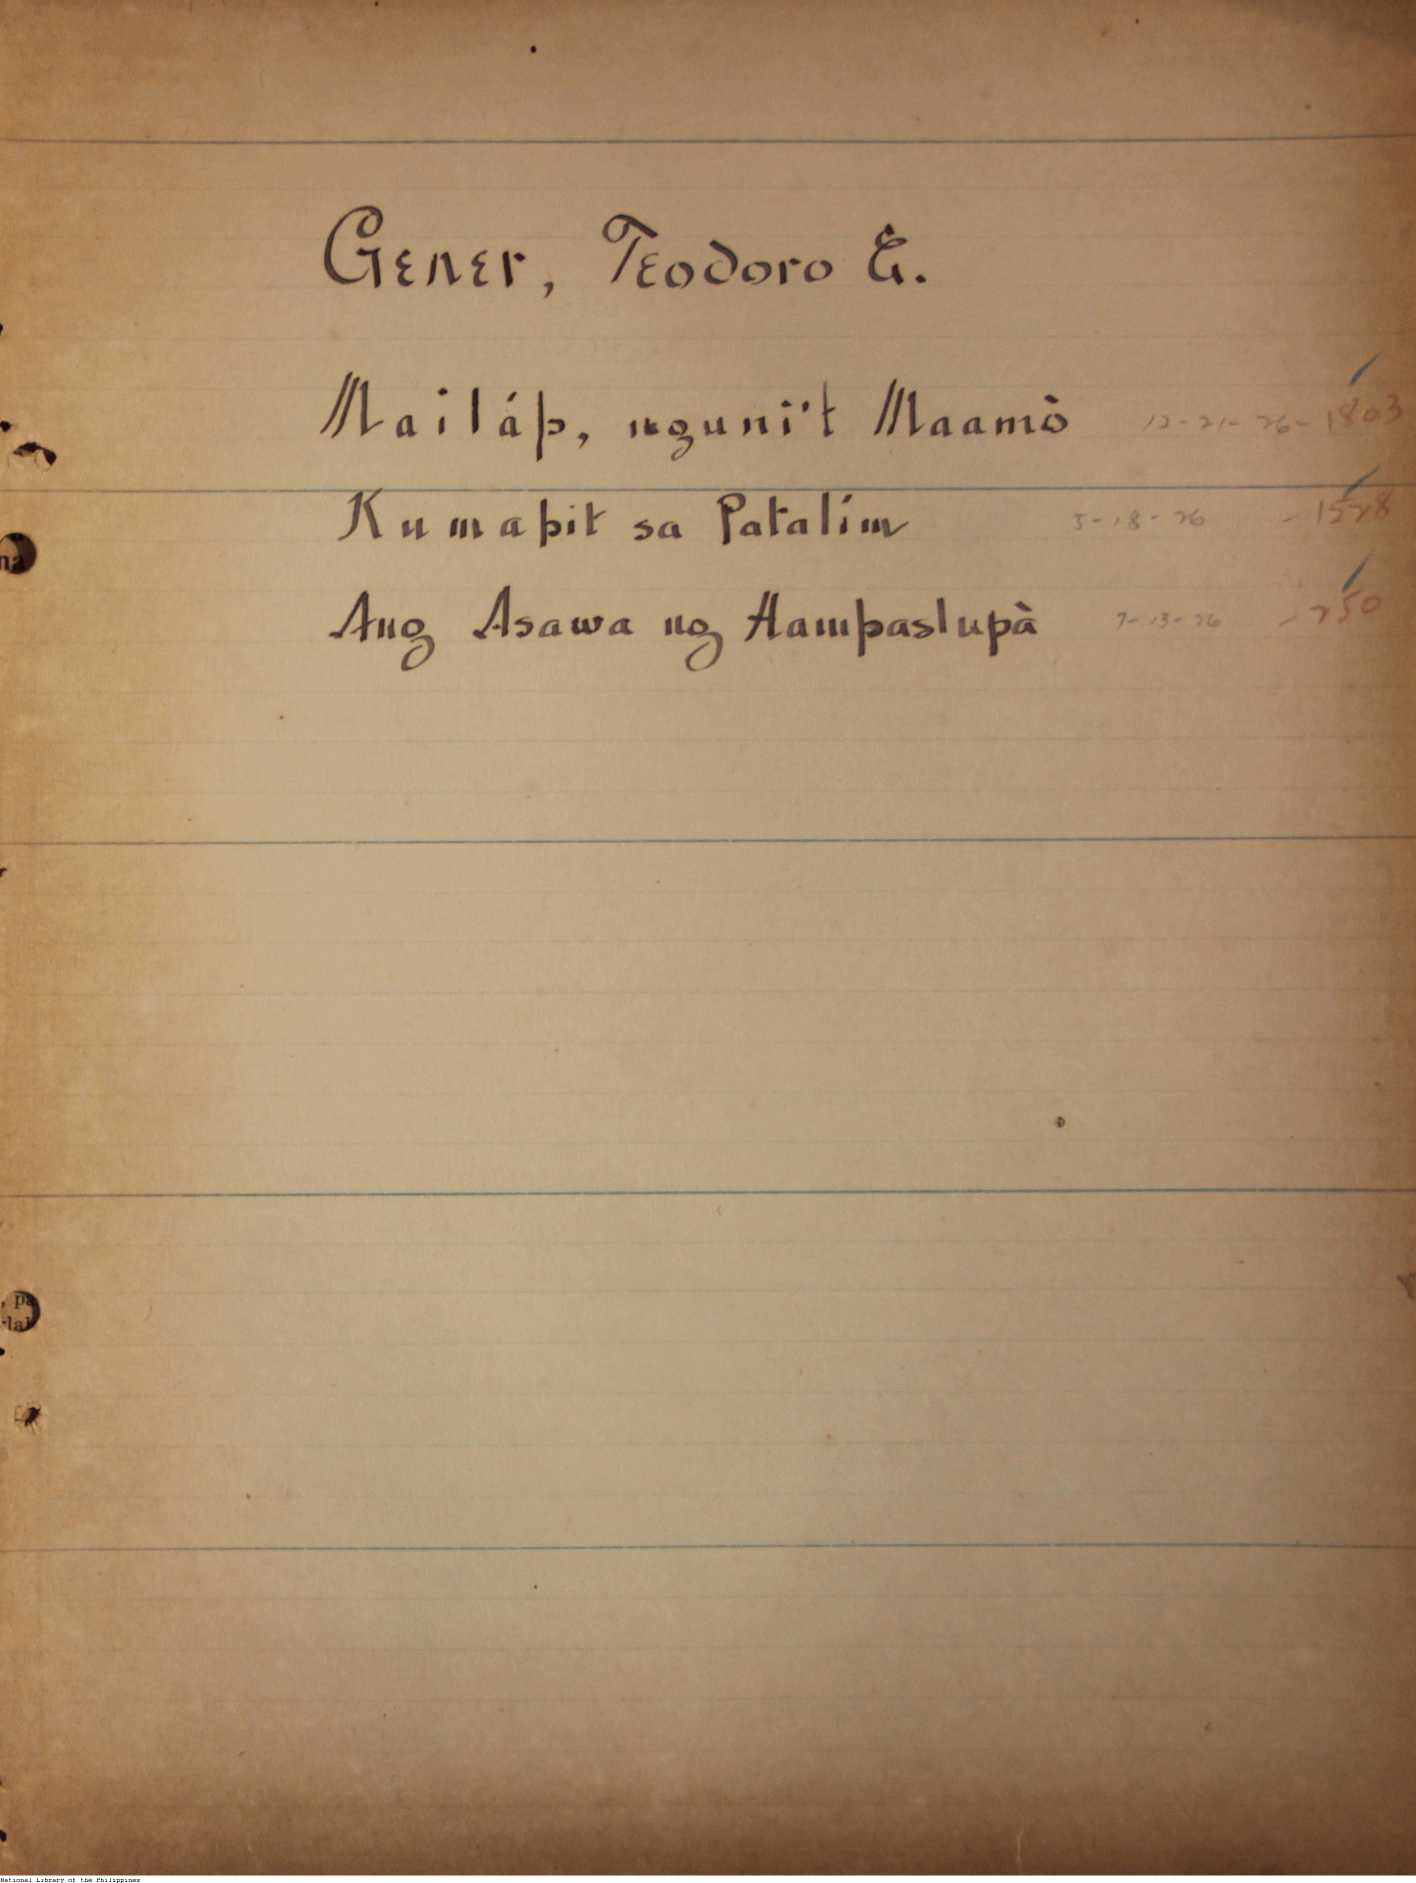 Gener, Teodoro E.
Mailáp, nguni't Maamò 12-21-26-1803
Kumapit sa Patalím 5-18-26 -1528
Ang Asawa ng Hampaslupà 7-13-26 -250
na
, pa
-lak
National Library of the Philippines